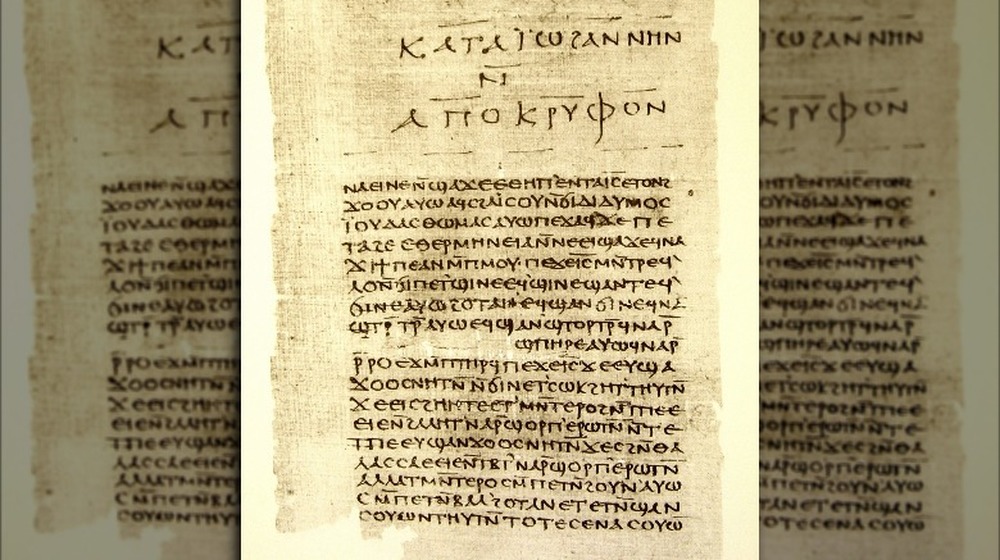 ⲕⲁⲧⲁ ⲓ̈ⲱϩⲁⲛⲛⲏⲛ
ⲛ̄
ⲁⲡⲟⲕⲣⲩⲫⲟⲛ
ⲛⲁⲉⲓⲛⲉⲛ̄ϣⲁϫⲉⲉⲑⲏⲡ`ⲉⲛⲧⲁⲓ̄ⲥ̄ⲉⲧⲟⲛϩ
ϫⲟⲟⲩⲁⲩⲱⲁϥⲥϩⲁⲓ̈ⲥⲟⲩⲛ̄ϭⲓⲇⲓⲇⲩⲙⲟⲥ
ⲓ̈ⲟⲩⲇⲁⲥⲑⲱⲙⲁⲥⲁⲩⲱⲡⲉϫⲁϥϫⲉⲡⲉ
ⲧⲁϩⲉⲉⲑⲉⲣⲙⲏⲛⲉⲓⲁⲛ̄ⲛⲉⲉⲓϣⲁϫⲉϥⲛⲁ
ϫⲓϯⲡⲉⲁⲛⲙ̄ⲡⲙⲟⲩ·ⲡⲉϫⲉⲓ̄ⲥ̄ⲙⲛ̄ⲧⲣⲉϥ`
ⲗⲟⲛ̄ϭⲓⲡⲉⲧϣⲓⲛⲉⲉϥϣⲓⲛⲉϣⲁⲛⲧⲉϥ`
ϭⲓⲛⲉⲁⲩⲱϩⲟⲧⲁⲛⲉϥϣⲁⲛϭⲓⲛⲉϥⲛⲁ
ϣⲧⲣ̄ⲧⲣ̄ⲁⲩⲱⲉϥϣⲁⲛϣⲧⲟⲣⲧⲣ̄ϥⲛⲁⲣ̄
ϣⲡⲏⲣⲉⲁⲩⲱϥⲛⲁⲣ̄
ⲣ̄ⲣⲟⲉϫⲙ̄ⲡⲧⲏⲣϥⲡⲉϫⲉⲓ̄ⲥ̄ϫⲉⲉⲩϣⲁ
ϫⲟⲟⲥⲛⲏⲧⲛ̄ⲛ̄ϭⲓⲛⲉⲧ`ⲥⲱⲕϩⲏⲧ`ⲑⲏⲩⲧⲛ̄
ϫⲉⲉⲓⲥϩⲏⲏⲧⲉⲉⲧ`ⲙⲛ̄ⲧⲉⲣⲟϩⲛ̄ⲧⲡⲉⲉ
ⲉⲓⲉⲛ̄ϩⲁⲗⲏⲧ`ⲛⲁⲣ̄ϣⲟⲣⲡ`ⲉⲣⲱⲧⲛ̄ⲛ̄ⲧⲉ
ⲧⲡⲉⲉⲩϣⲁⲛϫⲟⲟⲥⲛⲏⲧⲛ̄ϫⲉⲥϩⲛ̄ⲑⲁ
ⲗⲁⲥⲥⲁⲉⲉⲓⲉⲛ̄ⲧⲃⲧ`ⲛⲁⲣ̄ϣⲟⲣⲡ`ⲉⲣⲱⲧⲛ̄
ⲁⲗⲗⲁⲧⲙⲛ̄ⲧⲉⲣⲟⲥⲙ̄ⲡⲉⲧⲛ̄ϩⲟⲩⲛ`ⲁⲩⲱ
ⲥⲙ̄ⲡⲉⲧⲛ̄ⲃⲁⲗ`ϩⲟⲧⲁⲛⲉⲧⲉⲧⲛ̄ϣⲁⲛ
ⲥⲟⲩⲱⲛⲧⲏⲩⲧⲛ̄ⲧⲟⲧⲉⲥⲉⲛⲁⲥⲟⲩⲱ